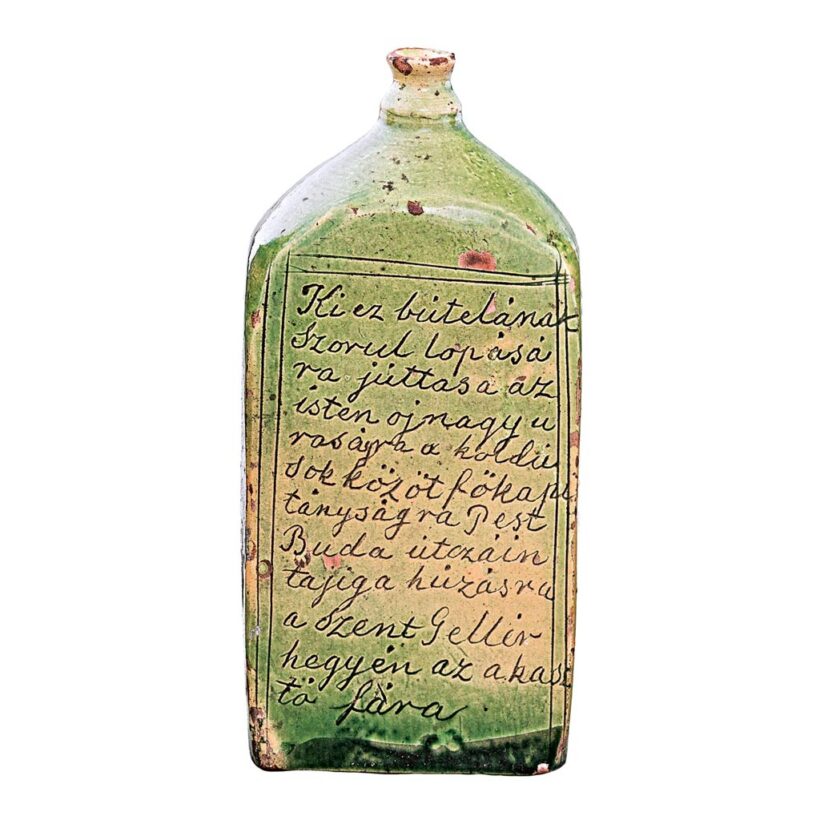 Ki ez bútelának
Szorul lopásá
ra júttasa az
isten oj nagy u
raságra a koldú
sok között főkapi
tányságra Pest
Buda útczáin
tajiga húzásra
a Szent Gellír
hegyén az akasz
tó fára